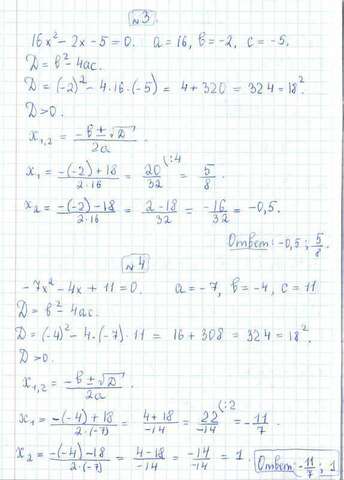 №3.
16x² - 2x - 5 = 0. a = 16, b = -2, c = -5.
D = b² - 4ac.
D = (-2)² - 4·16·(-5) = 4 + 320 = 324 = 18².
D > 0.
x₁,₂ = (-b ± √D)/2a.
x₁ = (-(-2) + 18)/(2·16) = 20/32 (:4 = 5/8.
x₂ = (-(-2) - 18)/(2·16) = (2 - 18)/32 = -16/32 = -0,5.
Ответ: -0,5; 5/8.
№4
-7x² - 4x + 11 = 0. a = -7, b = -4, c = 11
D = b² - 4ac.
D = (-4)² - 4·(-7)·11 = 16 + 308 = 324 = 18².
D > 0.
x₁,₂ = (-b ± √D)/2a.
x₁ = (-(-4) + 18)/(2·(-7)) = (4 + 18)/-14 = 22/-14 (:2 = -11/7
x₂ = (-(-4) - 18)/(2·(-7)) = (4 - 18)/-14 = -14/-14 = 1.
Ответ: -11/7; 1